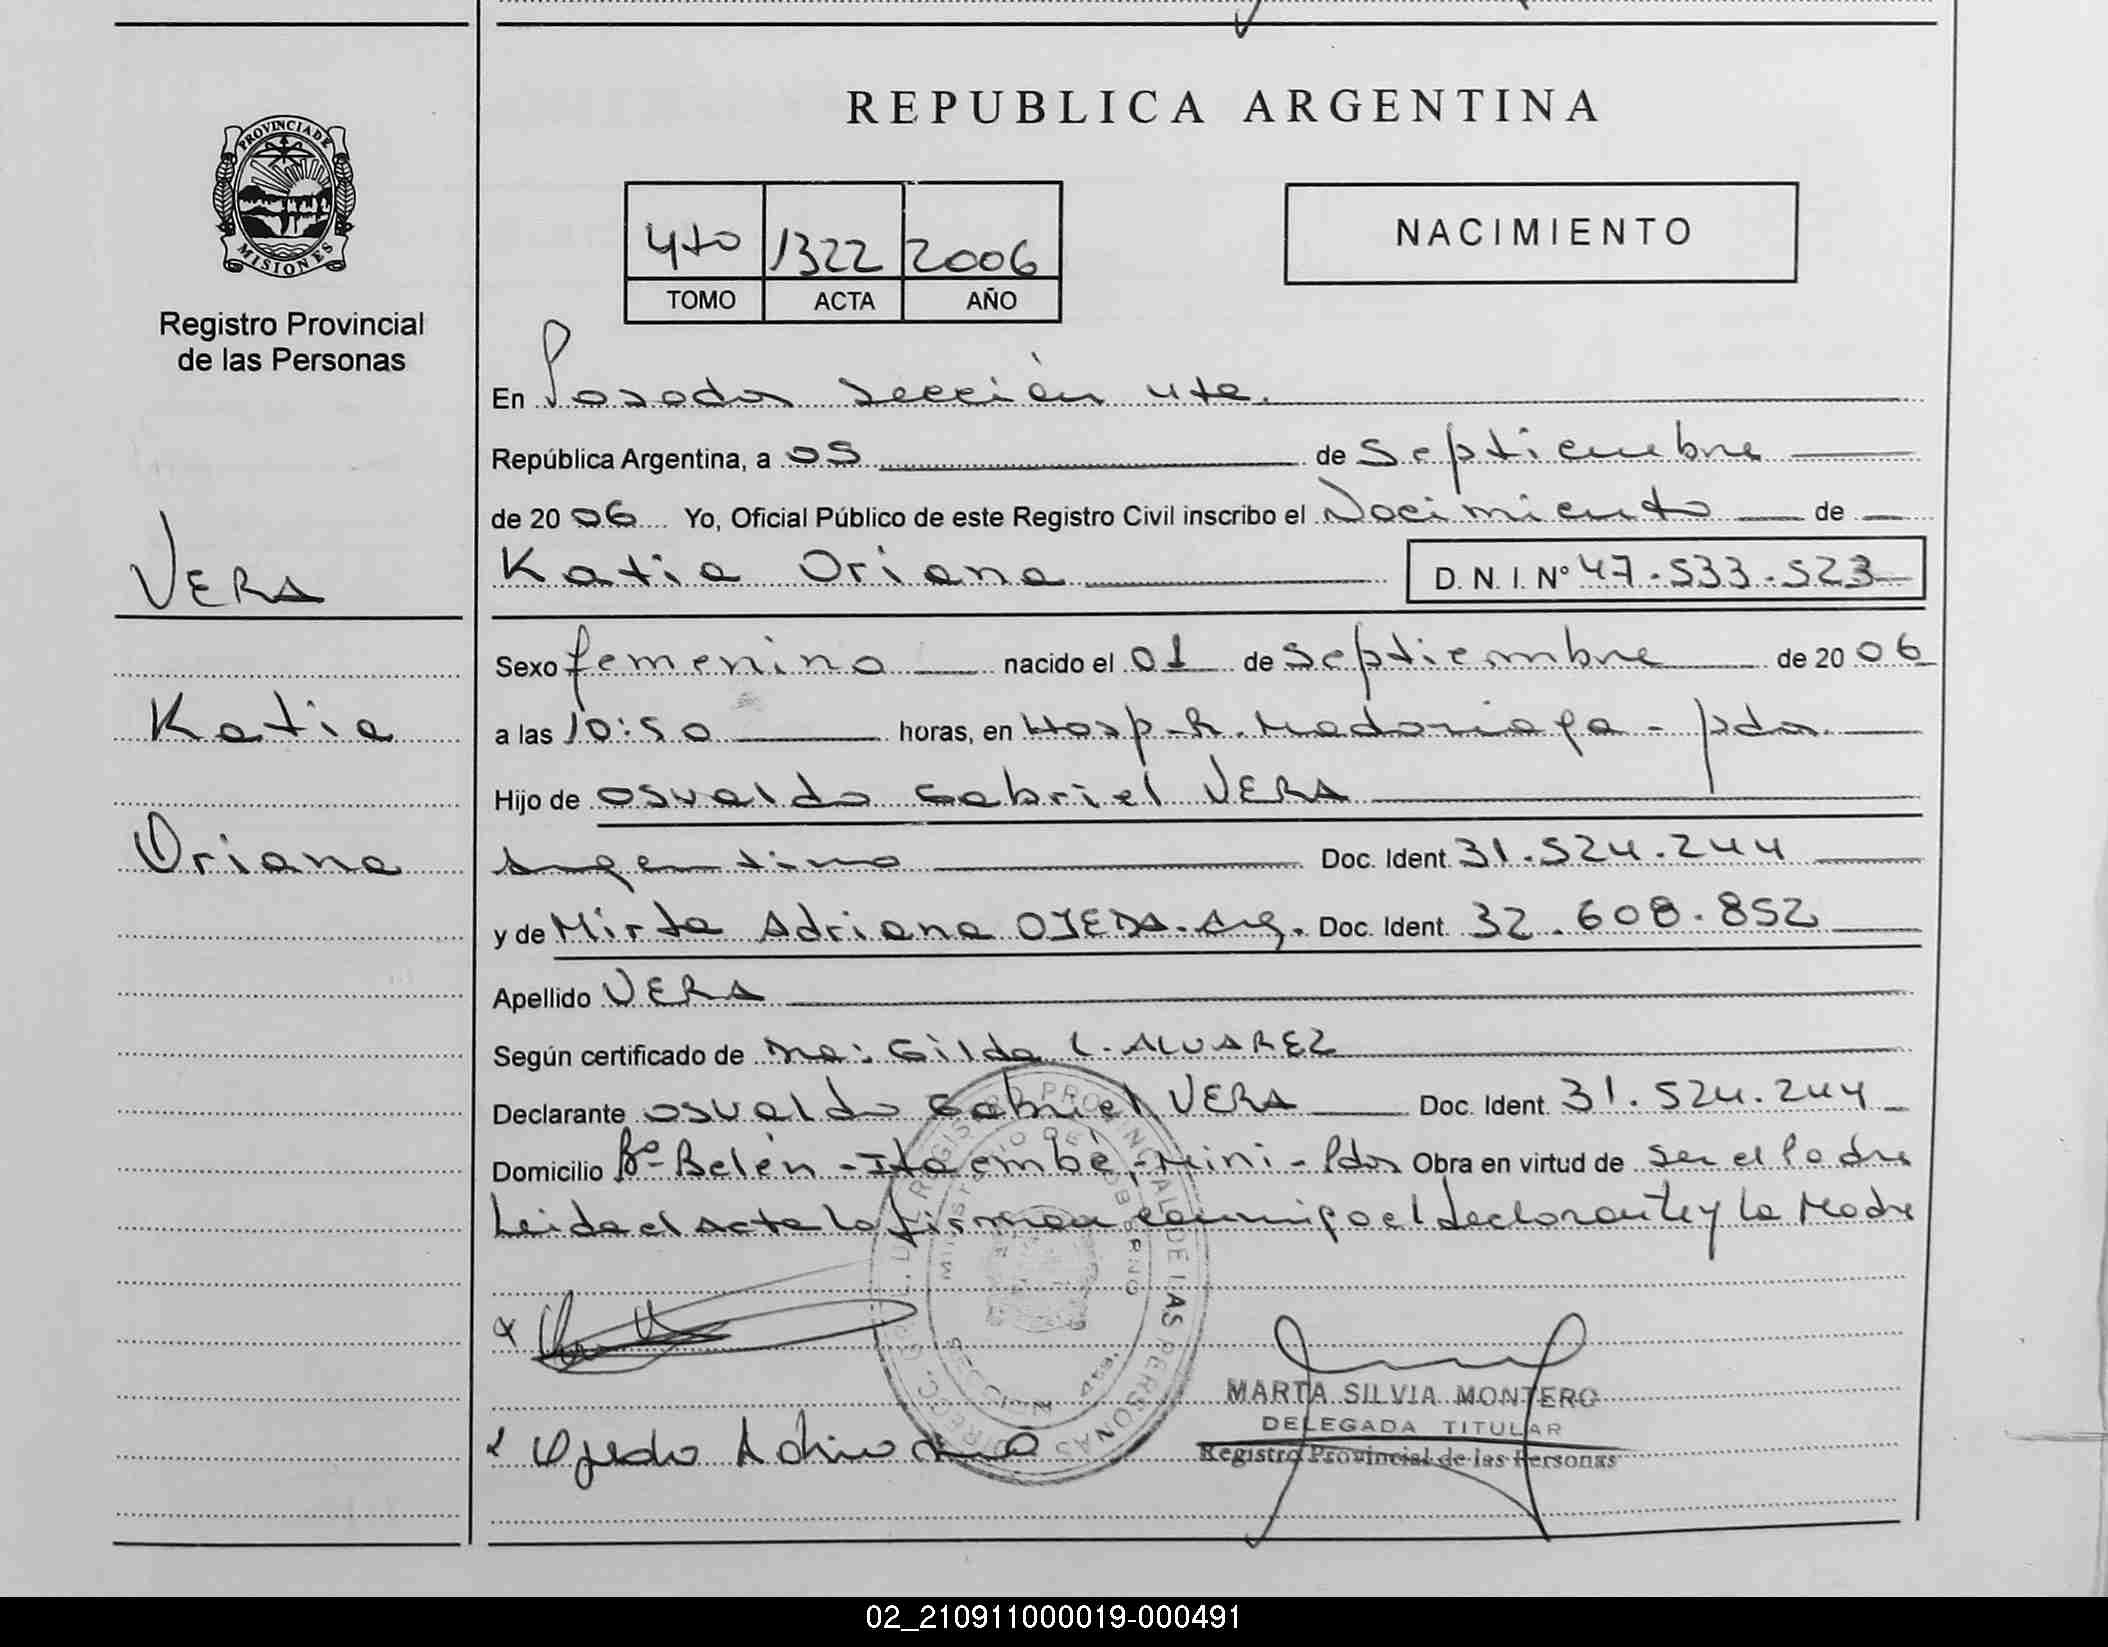 REPUBLICA ARGENTINA
PROVINCIA DE MISIONES
Registro Provincial
de las Personas
4to 1322 2006
TOMO ACTA AÑO
NACIMIENTO
En Posadas sección 4ta.
República Argentina, a 05 de Septiembre
de 2006 Yo, Oficial Público de este Registro Civil inscribo el Nacimiento de
Katia Oriana D. N. I. Nº 47.533.523
VERA
Katia
Oriana
Sexo femenino nacido el 01 de Septiembre de 2006
a las 10:50 horas, en Hosp. R. Madariaga - pdas.
Hijo de Osvaldo Gabriel VERA
Argentino Doc. Ident. 31.524.244
y de Mirta Adriana OJEDA. Arg. Doc. Ident. 32.608.852
Apellido VERA
Según certificado de Gilda L. ALVAREZ
Declarante Osvaldo Gabriel VERA Doc. Ident. 31.524.244
Domicilio Bº Belén - Itaembé - Mini - Pdas Obra en virtud de ser el Padre
Leida el Acta la firman conmigo el declarante y la Madre
DIRECC. GRAL. DEL REGISTRO PROVINCIAL DE LAS PERSONAS
MINISTERIO DE GOBIERNO
SECCION 4ta.
Ojeda Adriana
MARTA SILVIA MONTERO
DELEGADA TITULAR
Registro Provincial de las Personas
02_210911000019-000491